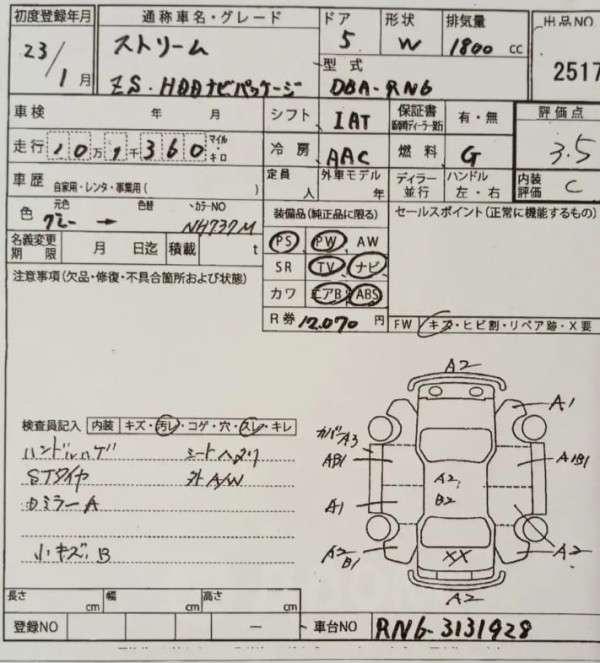 初度登録年月 通称車名・グレード ドア 形状 排気量 出品NO
23/1月 ストリーム 5 W 1800 cc 2517
ZS・HDDナビパッケージ 型式 DBA-RN6
車検 年 月 シフト IAT 保証書 有・無 評価点
走行 10万1千360 マイル キロ 冷房 AAC 燃料 G 3.5
車歴 自家用・レンタ・事業用( ) 定員 人 外車モデル 年 ディラー 並行 ハンドル 左・右 内装評価 C
色 元色 グレー → 色替 カラーNO NH737M 装備品(純正品に限る) セールスポイント(正常に機能するもの)
名義変更期限 月 日迄 積載 t PS PW AW
注意事項(欠品・修復・不具合箇所および状態) SR TV ナビ
カワ エアB ABS
R券 12,070 円 FW キズ・ヒビ割・リペア跡・X要
検査員記入 内装 キズ・汚レ・コゲ・穴・スレ・キレ
ハンドルハゲ シートヘタリ
STタイヤ 外A/W
カミラーA
小キズ B
A2
A1
カバーA3
AB1 A1B1
A2 B2
A1
A2 B1 XX A2
A2
長さ cm 幅 cm 高さ cm
登録NO - 車台NO RN6-3131928